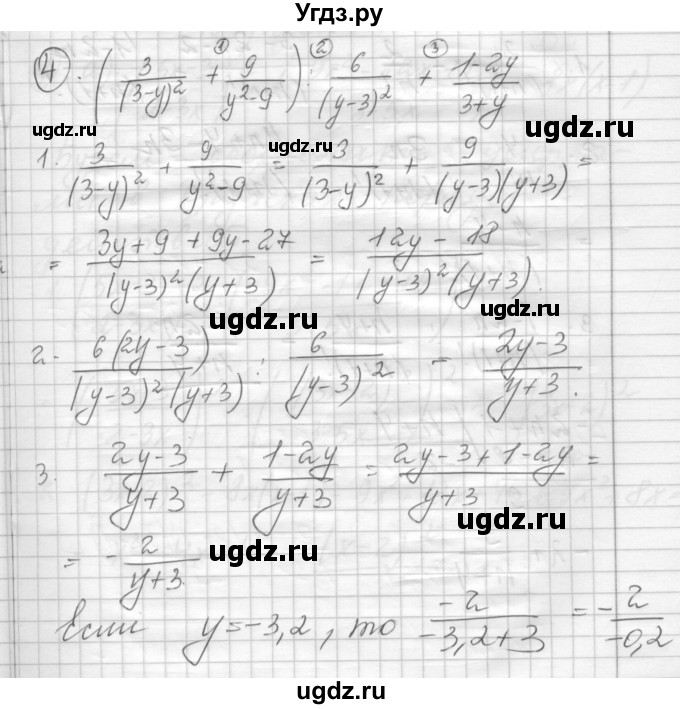 Угдз.ру
① ② ③
④. (3/(3-y)² + 9/(y²-9)) : 6/(y-3)² + (1-2y)/(3+y)
ugdz.ru ugdz.ru
1. 3/(3-y)² + 9/(y²-9) = 3/(3-y)² + 9/((y-3)(y+3)) =
ugdz.ru
= (3y+9+9y-27)/((y-3)²(y+3)) = (12y-18)/((y-3)²(y+3)).
ugdz.ru ugdz.ru
2. 6(2y-3)/((y-3)²(y+3)) : 6/(y-3)² = (2y-3)/(y+3).
ugdz.ru
3. (2y-3)/(y+3) + (1-2y)/(y+3) = (2y-3+1-2y)/(y+3) =
ugdz.ru
= -2/(y+3).
ugdz.ru
Если y=-3,2, то -2/(-3,2+3) = -2/(-0,2
ugdz.ru ugdz.ru
ugdz.ru